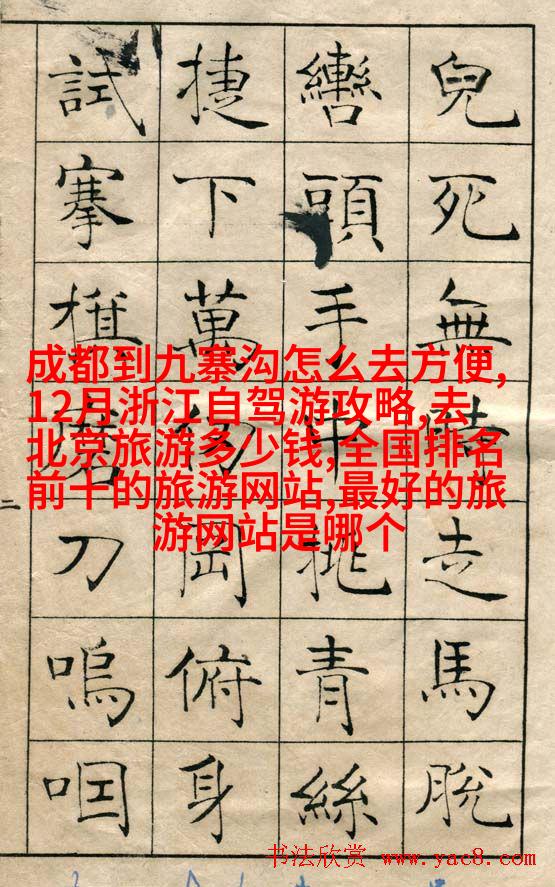 兒死無時走馬脫
轡頭手中挑青絲
捷下萬仞岡俯身
試搴旗磨刀嗚咽
二
成都到九寨沟怎么去方便,
12月浙江自驾游攻略,去
北京旅游多少钱,全国排名
前十的旅游网站,最好的旅
游网站是哪个
书法欣赏 www.yac8.com